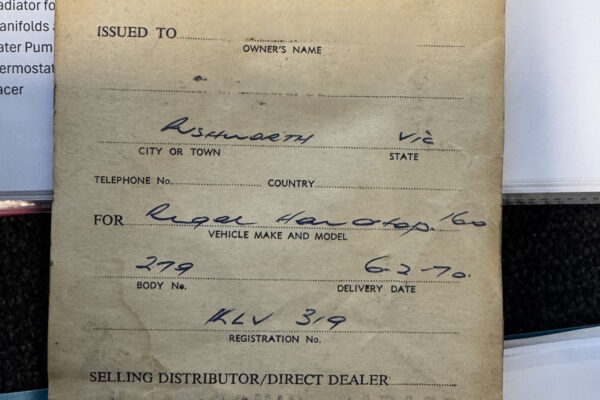 adiator fo
anifolds a
ater Pum
ermostat
acer
ISSUED TO
OWNER'S NAME
Rushworth Vic
CITY OR TOWN STATE
TELEPHONE No. COUNTRY
FOR Regal Hardtop. '60
VEHICLE MAKE AND MODEL
279 6-2-70.
BODY No. DELIVERY DATE
KLV 319
REGISTRATION No.
SELLING DISTRIBUTOR/DIRECT DEALER